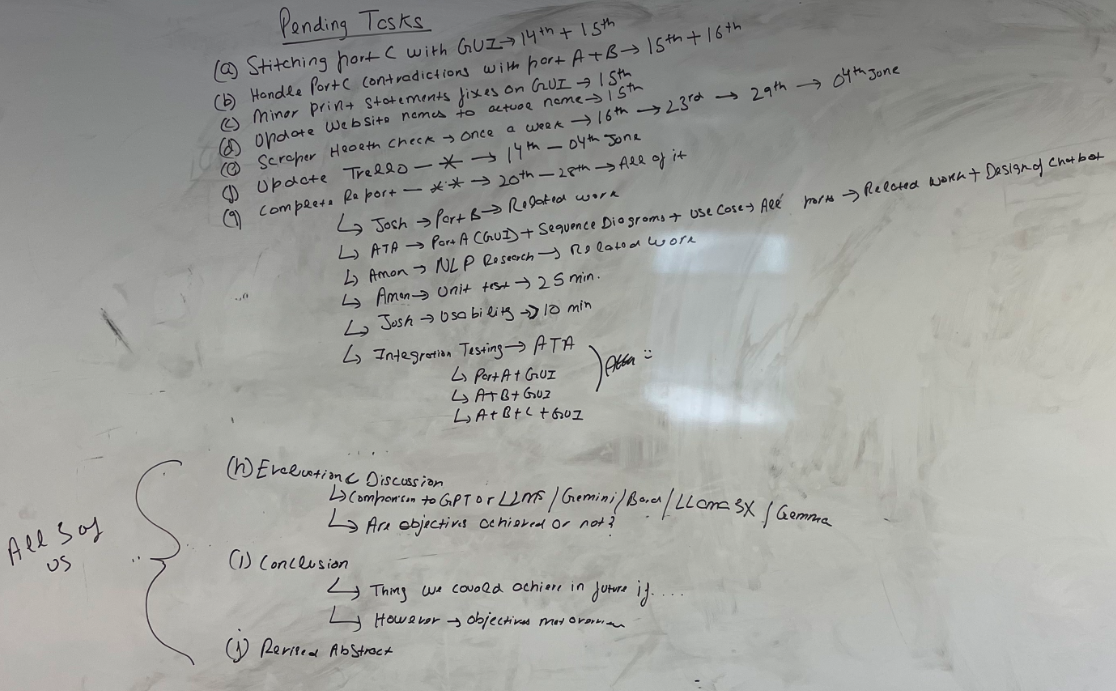 Pending Tasks
(a) Stitching part C with GUI → 14th + 15th
(b) Handle Part C contradictions with part A + B → 15th + 16th
(c) Minor print statements fixes on GUI → 15th
(d) Update website names to actual name → 15th
(e) Scraper Health check → once a week → 16th → 23rd → 29th → 04th June
(f) Update Trello — * → 14th — 04th June
(g) Complete Report — ** → 20th — 28th → All of it
↳ Josh → Part B → Related work
↳ ATA → Part A (GUI) + Sequence Diagrams + Use Case → All parts → Related work + Design of Chatbot
↳ Aman → NLP Research → Related work
↳ Aman → Unit test → 25 min.
↳ Josh → Usability → 10 min
↳ Integration Testing → ATA
↳ Part A + GUI
↳ A + B + GUI
↳ A + B + C + GUI
(h) Evaluation & Discussion
↳ Comparison to GPT or LLMs / Gemini / Bard / LLama 3X / Gemma
↳ Are objectives achieved or not?
(i) Conclusion
↳ Thing we could achieve in future if....
↳ However → objectives met
(j) Revised Abstract
All 3 of
us